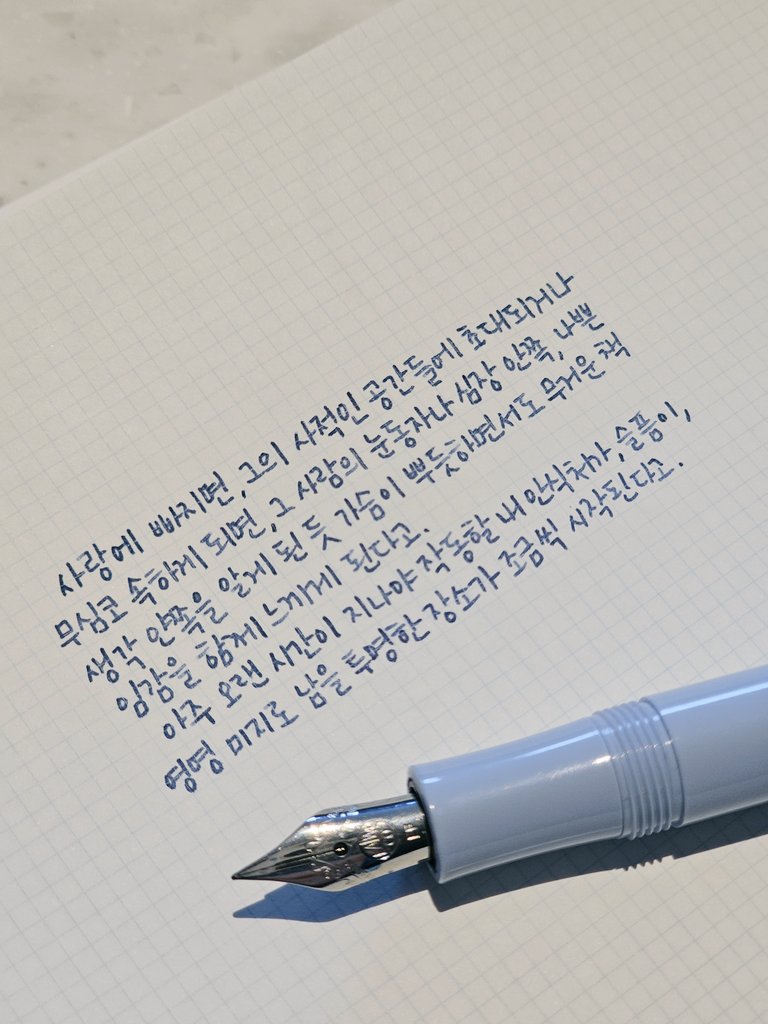 사랑에 빠지면, 그의 사적인 공간들에 초대되거나
무심코 속하게 되면, 그 사람의 눈동자나 심장 안쪽, 나쁜
생각 안쪽을 알게 된 듯 가슴이 뿌듯하면서도 무거운 책
임감을 함께 느끼게 된다고.
아주 오랜 시간이 지나야 작동할 내 안식처가, 슬픔이,
영영 미지로 남을 투명한 장소가 조금씩 시작된다고.